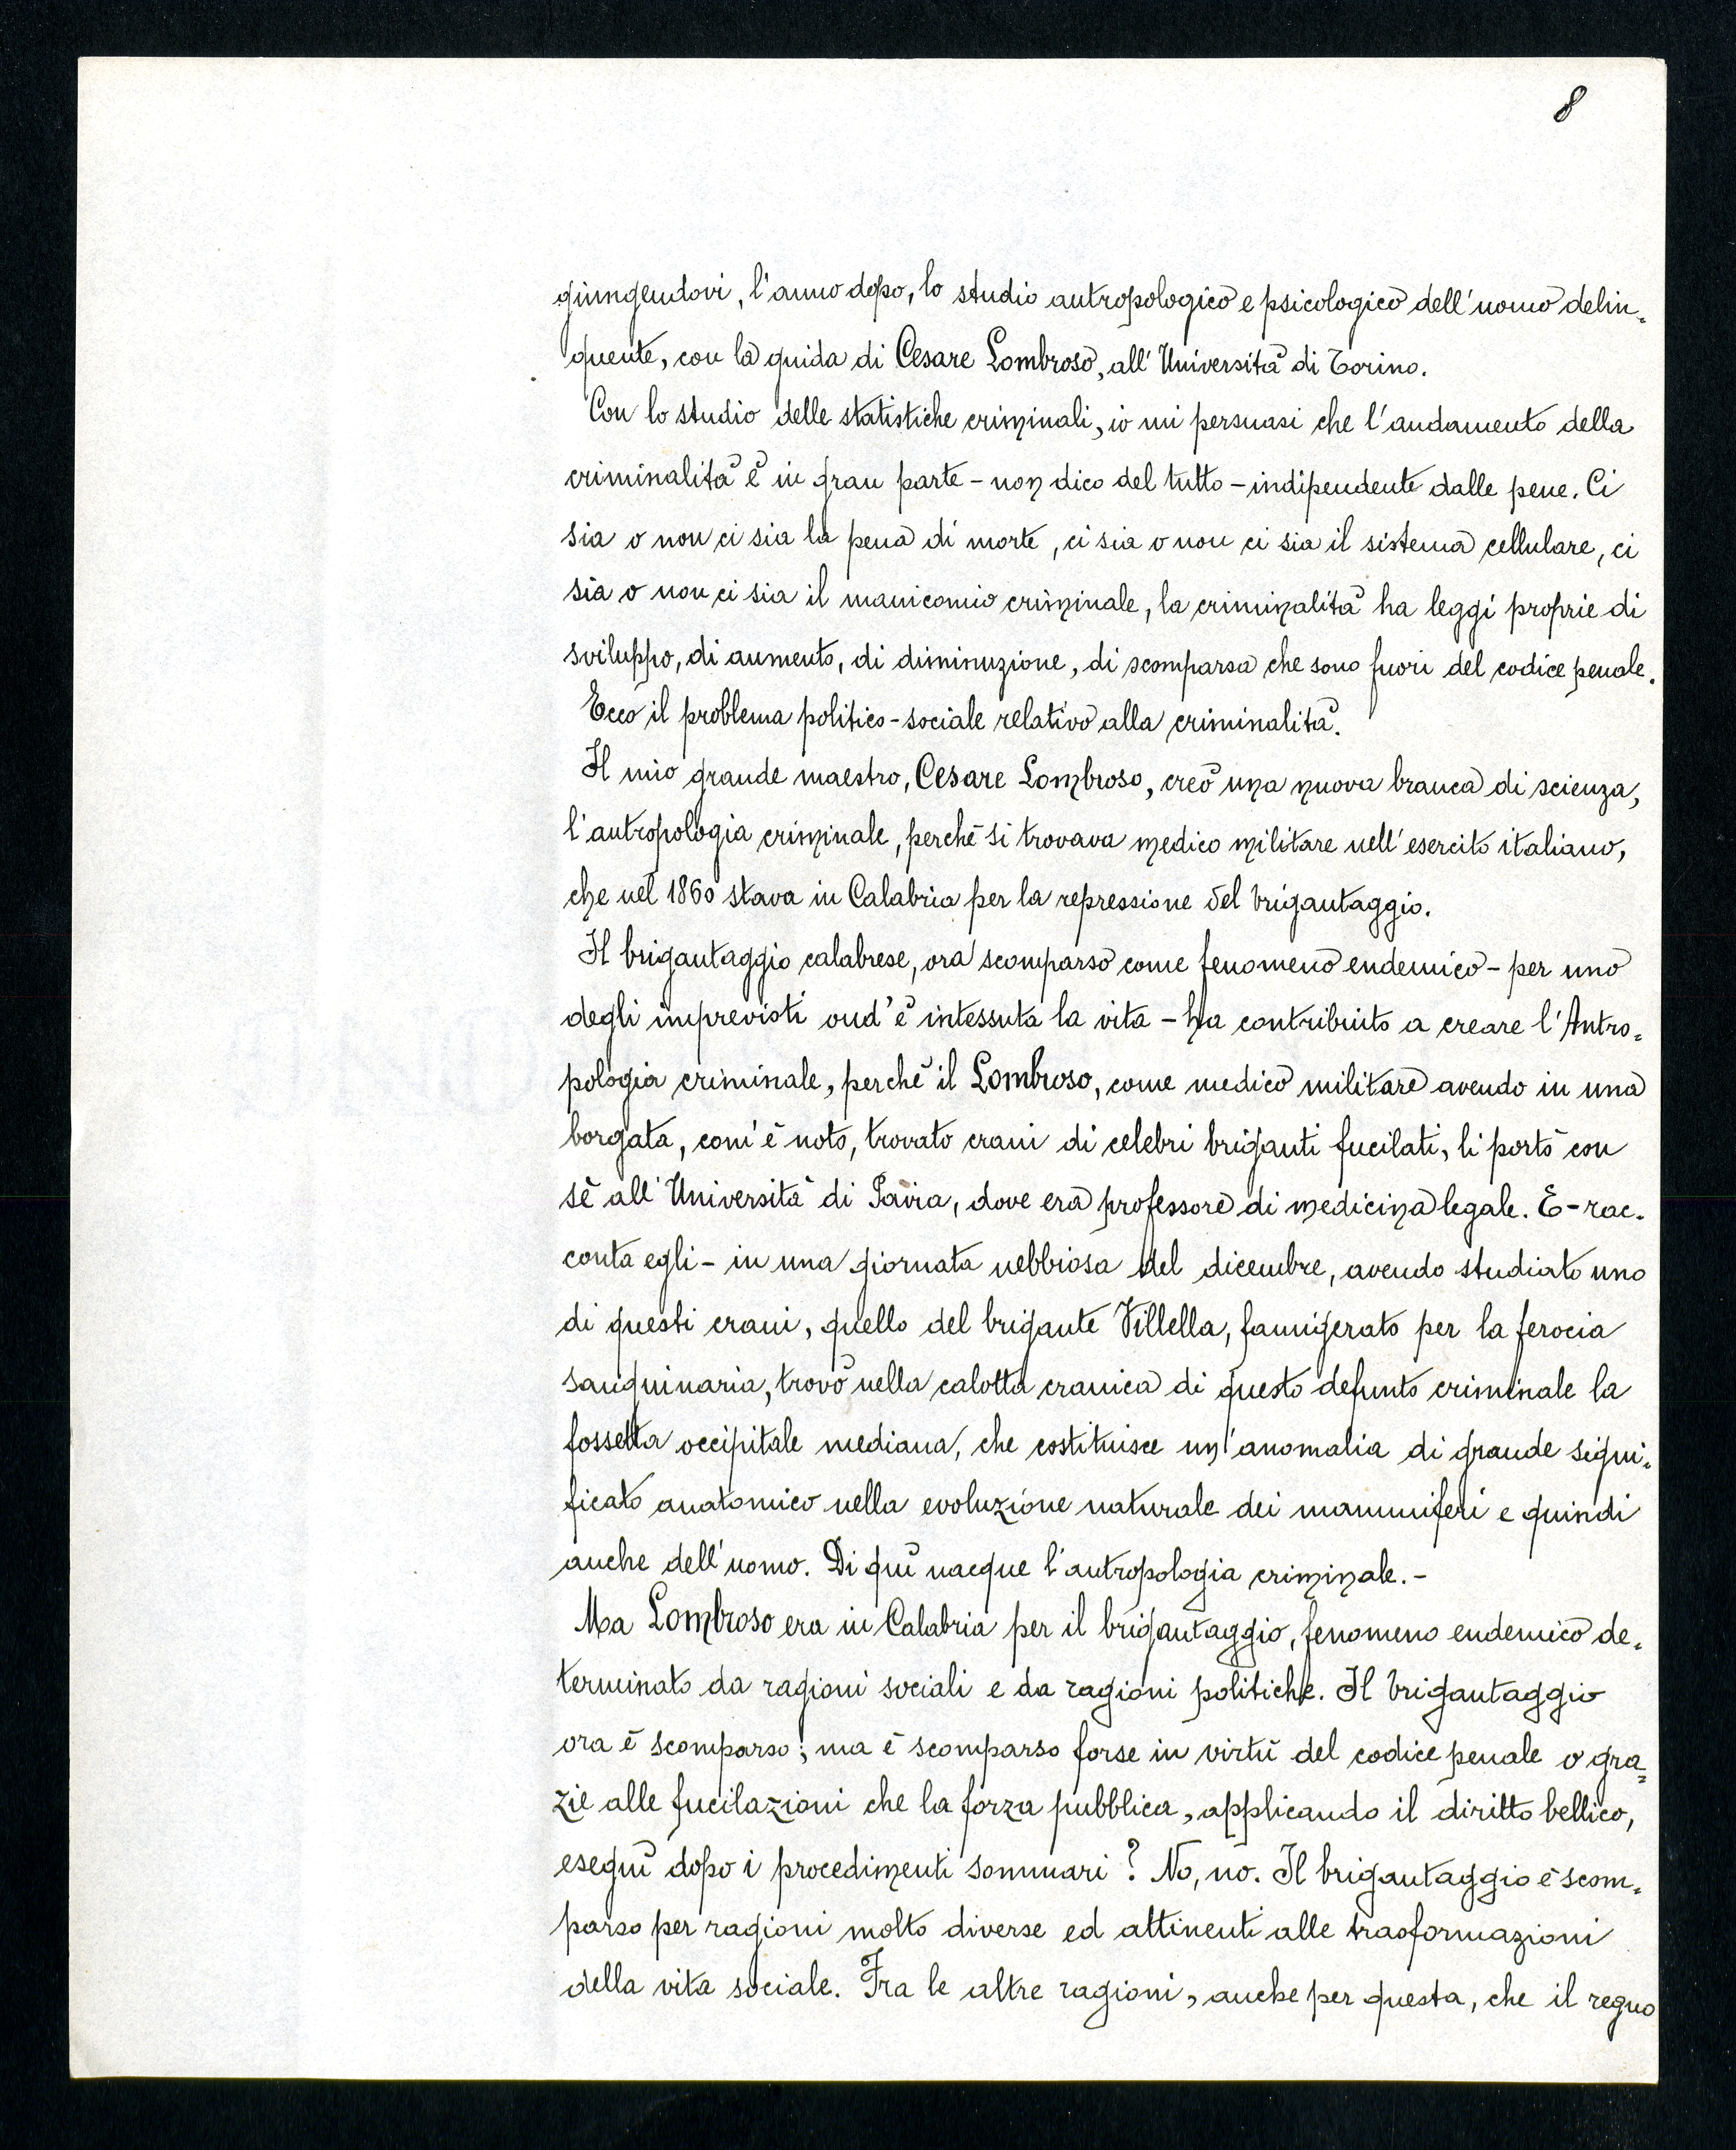 8
giungendovi, l'anno dopo, lo studio antropologico e psicologico dell'uomo delin=
quente, con la guida di Cesare Lombroso, all'Università di Torino.
Con lo studio delle statistiche criminali, io mi persuasi che l'andamento della
criminalità è in gran parte - non dico del tutto - indipendente dalle pene. Ci
sia o non ci sia la pena di morte, ci sia o non ci sia il sistema cellulare, ci
sia o non ci sia il manicomio criminale, la criminalità ha leggi proprie di
sviluppo, di aumento, di diminuzione, di scomparsa che sono fuori del codice penale.
Ecco il problema politico-sociale relativo alla criminalità.
Il mio grande maestro, Cesare Lombroso, creò una nuova branca di scienza,
l'antropologia criminale, perchè si trovava medico militare nell'esercito italiano,
che nel 1860 stava in Calabria per la repressione del brigantaggio.
Il brigantaggio calabrese, ora scomparso come fenomeno endemico - per uno
degli imprevisti ond'è intessuta la vita - ha contribuito a creare l'Antro=
pologia criminale, perchè il Lombroso, come medico militare avendo in una
borgata, com'è noto, trovato crani di celebri briganti fucilati, li portò con
sè all'Università di Pavia, dove era professore di medicina legale. E - rac=
conta egli - in una giornata nebbiosa del dicembre, avendo studiato uno
di questi crani, quello del brigante Villella, famigerato per la ferocia
sanguinaria, trovò nella calotta cranica di questo defunto criminale la
fossetta occipitale mediana, che costituisce un'anomalia di grande signi=
ficato anatomico nella evoluzione naturale dei mammiferi e quindi
anche dell'uomo. Di quì nacque l'antropologia criminale. -
Ma Lombroso era in Calabria per il brigantaggio, fenomeno endemico de=
terminato da ragioni sociali e da ragioni politiche. Il brigantaggio
ora è scomparso; ma è scomparso forse in virtù del codice penale o gra=
zie alle fucilazioni che la forza pubblica, applicando il diritto bellico,
eseguì dopo i procedimenti sommari? No, no. Il brigantaggio è scom=
parso per ragioni molto diverse ed attinenti alle trasformazioni
della vita sociale. Fra le altre ragioni, anche per questa, che il regno